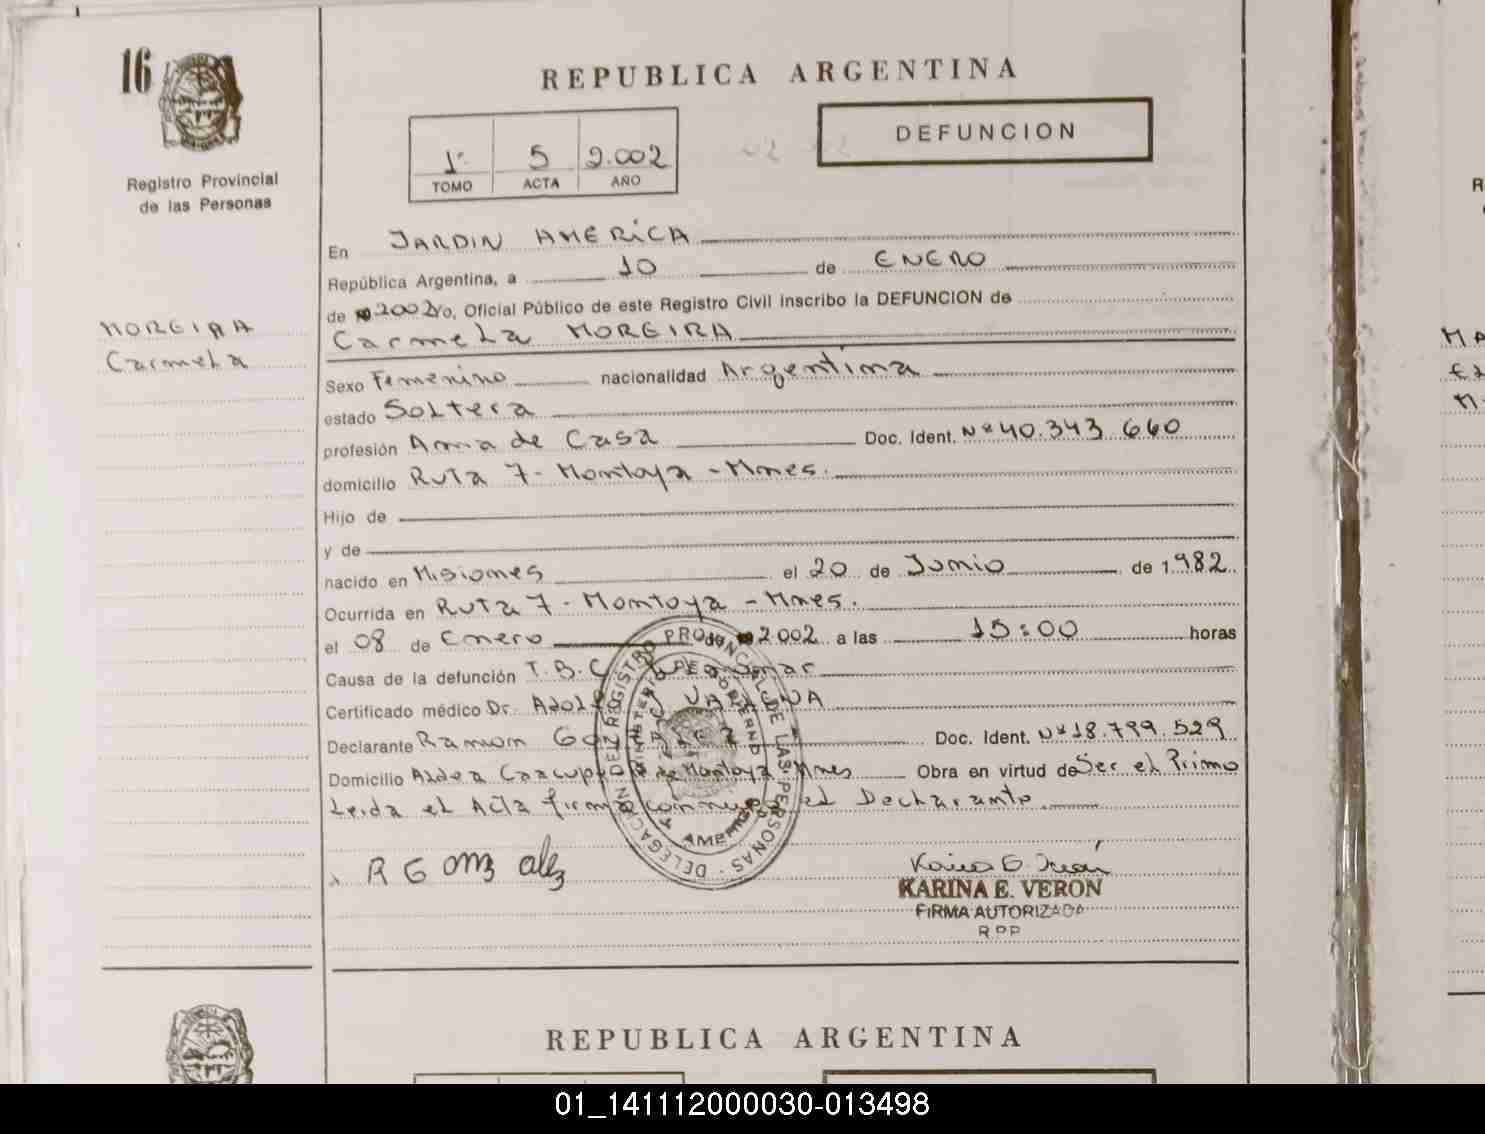 16
Registro Provincial
de las Personas
MOREIRA
Carmela
REPUBLICA ARGENTINA
1º 5 2.002
TOMO ACTA AÑO
DEFUNCION
En JARDIN AMERICA
República Argentina, a 10 de ENERO
de 2002 Yo, Oficial Público de este Registro Civil inscribo la DEFUNCION de
Carmela MOREIRA
Sexo Femenino nacionalidad Argentina
estado Soltera
profesión Ama de Casa Doc. Ident. Nº 40.343.660
domicilio Ruta 7 - Montoya - Mnes.
Hijo de
y de
nacido en Misiones el 20 de Junio de 1.982
Ocurrida en Ruta 7 - Montoya - Mnes.
el 08 de Enero de 2.002 a las 15:00 horas
Causa de la defunción T.B.C.
Certificado médico Dr.
Declarante Ramon Doc. Ident. Nº 18.799.529
Domicilio Aldea de Montoya - Mnes Obra en virtud de Ser el Primo
Leida el Acta firma conmigo el Declarante
R Gonzalez
KARINA E. VERON
FIRMA AUTORIZADA
RPP
DELEGACION DEL REGISTRO PROVINCIAL DE LAS PERSONAS
REPUBLICA ARGENTINA
01_141112000030-013498